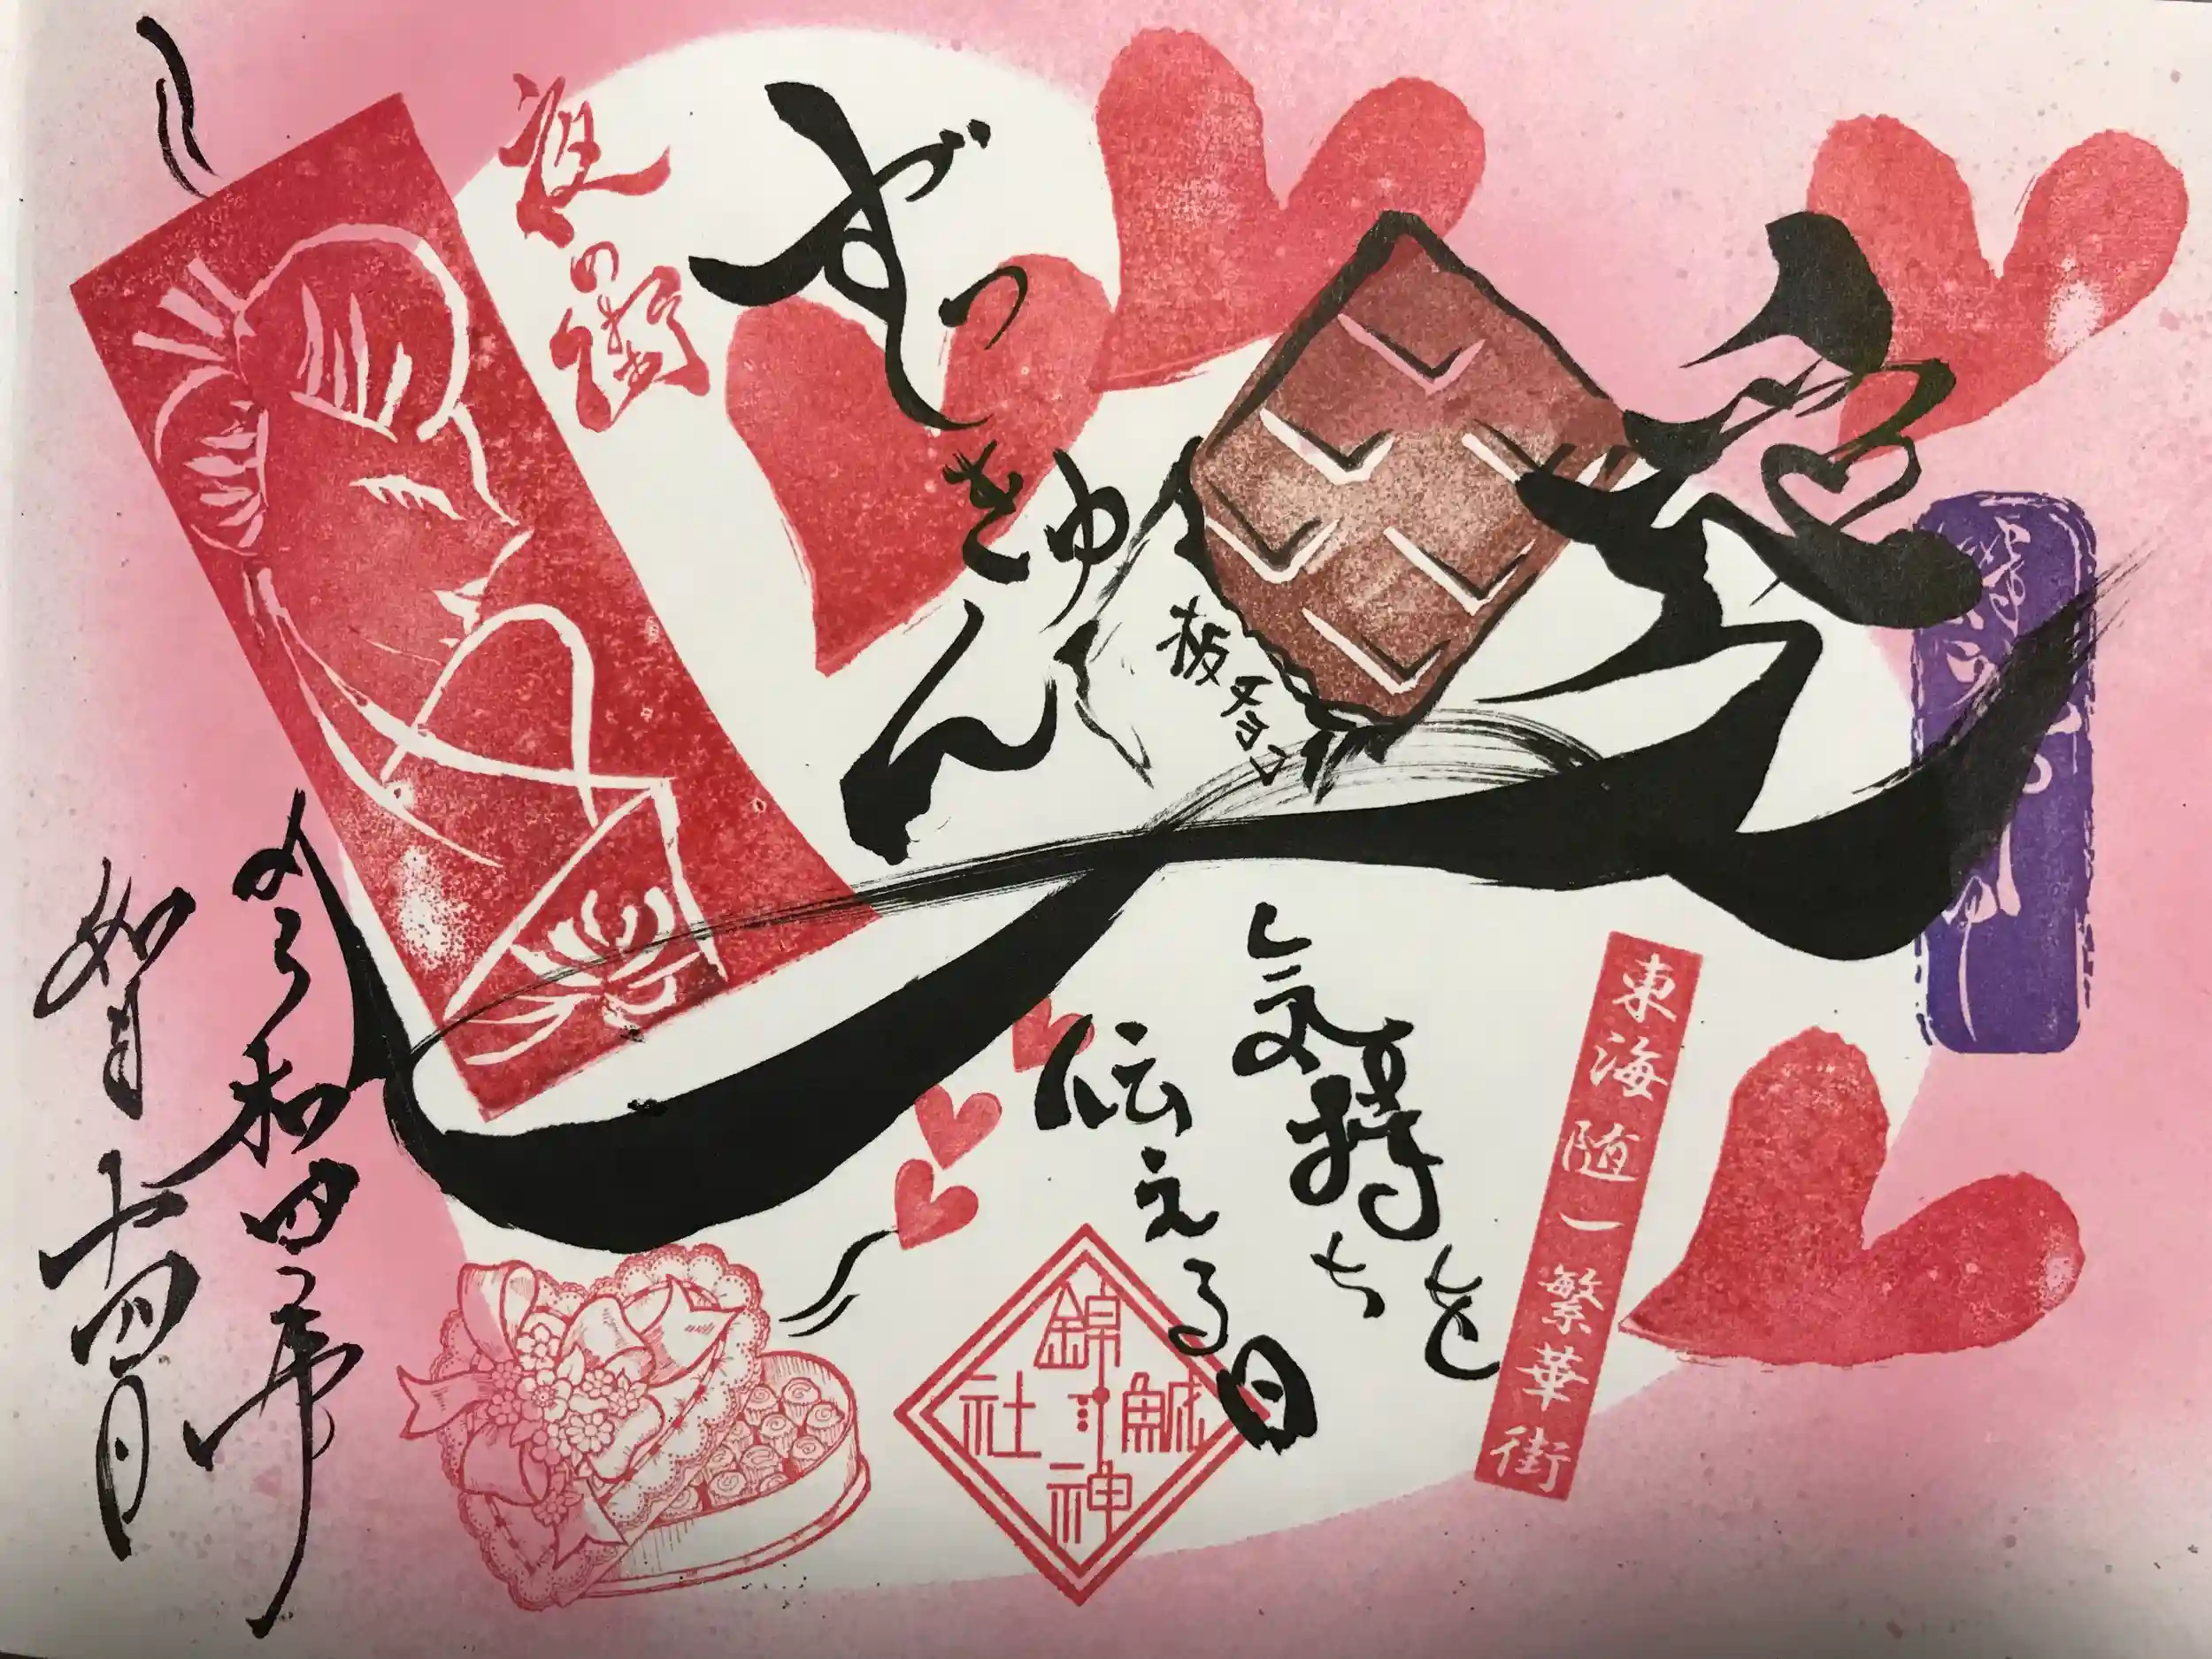 恋
ずっきゅん
板チョコ
夜の街
気持ちを
伝える日
東海随一繁華街
錦
鯱
神
社
令和四年
如月十四日